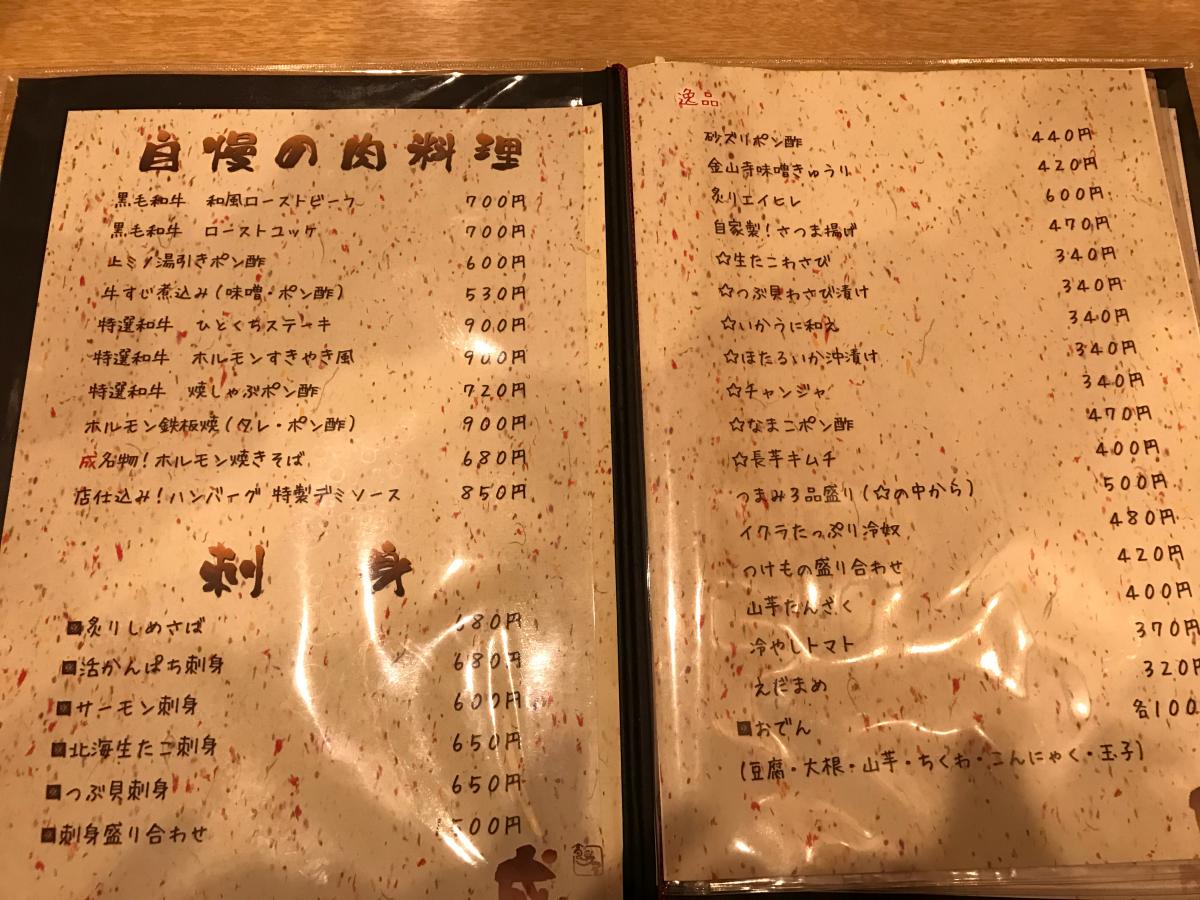 自慢の肉料理
黒毛和牛 和風ローストビーフ 700円
黒毛和牛 ローストユッケ 700円
上ミノ湯引きポン酢 600円
牛すじ煮込み(味噌・ポン酢) 530円
特選和牛 ひとくちステーキ 900円
特選和牛 ホルモンすきやき風 900円
特選和牛 焼しゃぶポン酢 720円
ホルモン鉄板焼(タレ・ポン酢) 900円
成名物!ホルモン焼きそば 680円
店仕込み!ハンバーグ 特製デミソース 850円
刺 身
炙りしめさば 680円
活かんぱち刺身 680円
サーモン刺身 600円
北海生たこ刺身 650円
つぶ貝刺身 650円
刺身盛り合わせ
逸品
砂ズリポン酢 440円
金山寺味噌きゅうり 420円
炙りエイヒレ 600円
自家製!さつま揚げ 470円
☆生たこわさび 340円
☆つぶ貝わさび漬け 340円
☆いかうに和え 340円
☆ほたるいか沖漬け 340円
☆チャンジャ 340円
☆なまこポン酢 470円
☆長芋キムチ 400円
つまみ3品盛り(☆の中から) 500円
イクラたっぷり冷奴 480円
つけもの盛り合わせ 420円
山芋たんざく 400円
冷やしトマト 370円
えだまめ 320円
おでん 各100
(豆腐・大根・山芋・ちくわ・こんにゃく・玉子)